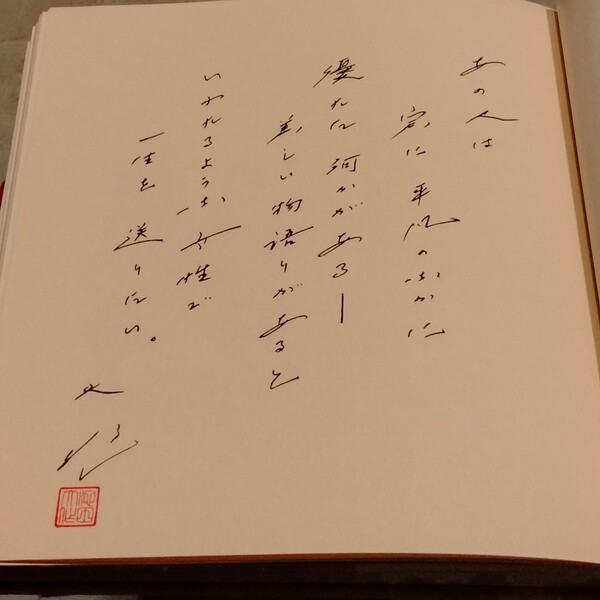 あの人は
実に平凡のなかに
優れた何かがある―
美しい物語りがあると
いわれるような女性で
一生を送りたい。
大作